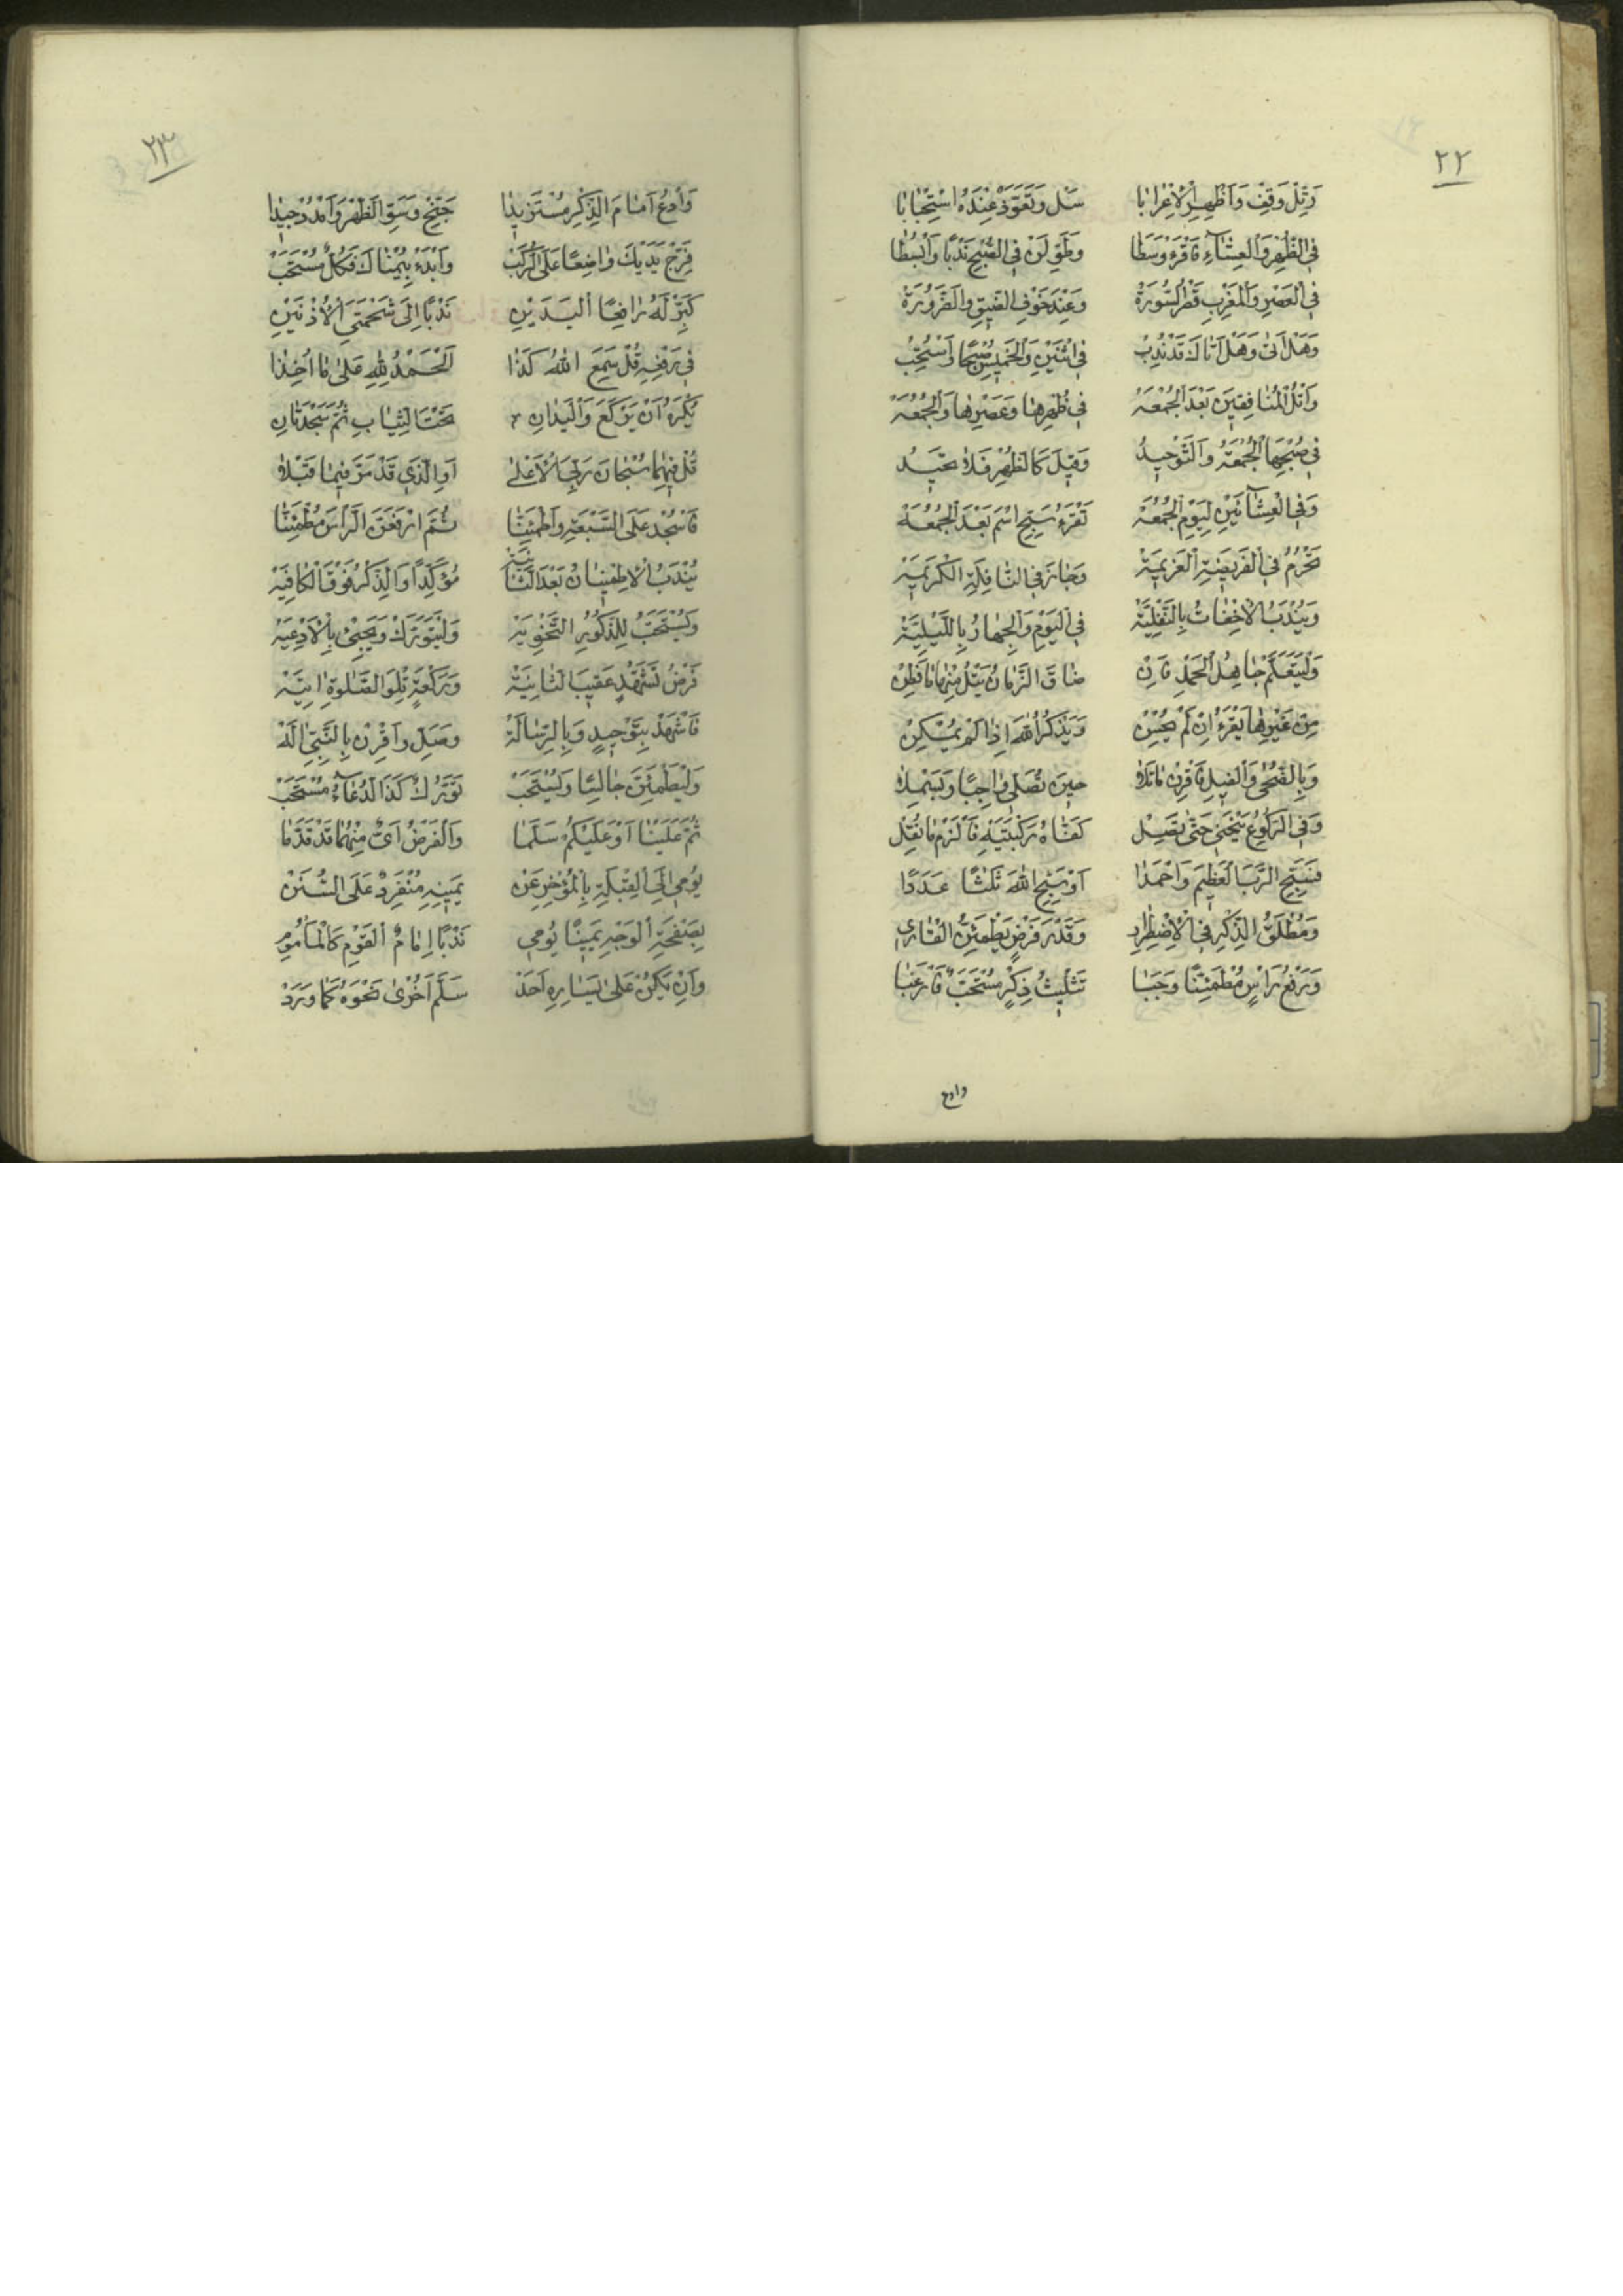 ٢٢
رَتِّلْ وَقِفْ وَاَظْهِرِ الْاِعْرَابَا سَلْ وَتَعَوَّذْ عِنْدَهُ اسْتِحْبَابَا
فِي الظُّهْرِ وَالْعِشَآءِ فَاقْرَءْ وَسَطَا وَطَوِّلَنْ فِي الصُّبْحِ نَدْبًا وَابْسُطَا
فِي الْعَصْرِ وَالْمَغْرِبِ قَصْرُ السُّورَةْ وَعِنْدَ خَوْفِ الضِّيقِ وَالضَّرُورَةْ
وَهَلْ اَتىٰ وَهَلْ اَتَاكَ قَدْ نُدِبْ فِي اثْنَيْنِ وَالْخَمِيسِ صُبْحًا وَاسْتُحِبْ
وَاتْلُ الْمُنَافِقِينَ بَعْدَ الْجُمُعَهْ فِي ظُهْرِهَا وَعَصْرِهَا وَالْجُمُعَهْ
فِي صُبْحِهَا الْجُمُعَةُ وَالتَّوْحِيدُ وَقِيلَ كَالظُّهْرِ فَلَا تَحِيدُ
وَفِي الْعِشَآئَيْنِ لِيَوْمِ الْجُمُعَهْ تَقْرَءُ سَبِّحِ اسْمَ بَعْدَ الْجُمُعَهْ
تَحْرُمُ فِي الْفَرِيضَةِ الْعَزِيمَةْ وَجَازَ فِي النَّافِلَةِ الْكَرِيمَةْ
وَيُنْدَبُ الْاِخْفَاتُ بِالنَّفْلِيَّةْ فِي الْيَوْمِ وَالْجِهَارُ بِاللَّيْلِيَّةْ
وَلْيَتَعَلَّمْ جَاهِلُ الْحَمْدِ فَاِنْ ضَاقَ الزَّمَانُ يَتْلُ مِنْهَا مَا فَطِنْ
مِنْ غَيْرِهَا يَقْرَءُ اِنْ لَمْ يُحْسِنْ وَيَذْكُرُ اللهَ اِذَا لَمْ يُمْكِنْ
وَبِالضُّحٰى وَالْفِيلِ فَاقْرِنْ مَا تَلَا حِينَ تُصَلِّي وَاجِبًا وَبَسْمِلَا
وَفِي الرُّكُوعِ يَنْحَنِي حَتّٰى تَصِلْ كَفَّاهُ رُكْبَتَيْهِ فَالْزَمْ مَا نُقِلْ
فَسَبِّحِ الرَّبَّ الْعَظِيمَ وَاحْمَدَا اَوْ سَبِّحِ اللهَ ثَلٰثًا عَدَدًا
وَمُطْلَقُ الذِّكْرِ فِي الْاِضْطِرَارِ وَقَدْرَ فَرْضٍ يَطْمَئِنُّ الْقَارِي
وَرَفْعُ رَاْسٍ مُطْمَئِنًّا وَجَبَا تَثْلِيثُ ذِكْرٍ مُسْتَحَبٌّ فَارْغَبَا
وادع
٢٣
وَادْعُ اَمَامَ الذِّكْرِ مُسْتَزِيدًا جَنِّحْ وَسَوِّ الظَّهْرَ وَامْدُدْ جِيدًا
فَرِّجْ يَدَيْكَ وَاضِعًا عَلَى الرُّكَبْ وَابْدَءْ بِيُمْنَاكَ فَكُلٌّ مُسْتَحَبْ
كَبِّرْ لَهُ رَافِعًا الْيَدَيْنِ نَدْبًا اِلٰى شَحْمَتَيِ الْاُذْنَيْنِ
فِي رَفْعِهِ قُلْ سَمِعَ اللهُ كَذَا اَلْحَمْدُ لِلّٰهِ عَلٰى مَا اُخِذَا
يُكْرَهُ اَنْ يَرْكَعَ وَالْيَدَانِ تَحْتَ الثِّيَابِ ثُمَّ سَجْدَتَانِ
قُلْ فِيهِمَا سُبْحَانَ رَبِّيَ الْاَعْلٰى اَوِ الَّذِي قَدْ مَرَّ فِيمَا قَبْلَا
فَاسْجُدْ عَلَى السَّبْعَةِ وَاطْمَئِنَّا ثُمَّ ارْفَعَنَّ الرَّاْسَ مُطْمَئِنًّا
يُنْدَبُ الْاِطْمِينَانُ بَعْدَ الثَّانِيَةْ مُؤَكَّدًا وَالذِّكْرُ فَوْقَ الْكَافِيَةْ
وَيُسْتَحَبُّ لِلذُّكُورِ التَّخْوِيَةْ وَلْيَتَوَرَّكْ وَيَجِئْ بِالْاَدْعِيَةْ
فَرْضُ تَشَهُّدٍ عَقِيبَ الثَّانِيَةْ وَرَكْعَةٍ تِلْوَ الصَّلٰوةِ اٰتِيَةْ
فَاشْهَدْ بِتَوْحِيدٍ وَبِالرِّسَالَةْ وَصَلِّ وَاقْرِنْ بِالنَّبِيِّ اٰلَهْ
وَلْيَطْمَئِنَّ جَالِسًا وَيُسْتَحَبْ تَوَرُّكٌ كَذَا الدُّعَآءُ مُسْتَحَبْ
ثُمَّ عَلَيْنَا اَوْ عَلَيْكُمْ سَلِّمَا وَالْفَرْضُ اَيٌّ مِنْهُمَا قَدْ قَدَّمَا
يُومِي اِلَى الْقِبْلَةِ بِالْمُؤْخِرِ عَنْ يَمِينِهِ مُنْفَرِدٌ عَلَى السُّنَنْ
بِصَفْحَةِ الْوَجْهِ يَمِينًا يُومِي نَدْبًا اِمَامُ الْقَوْمِ كَالْمَأْمُومِ
وَاِنْ يَكُنْ عَلٰى يَسَارِهِ اَحَدْ سَلَّمَ اُخْرٰى نَحْوَهُ كَمَا وَرَدْ